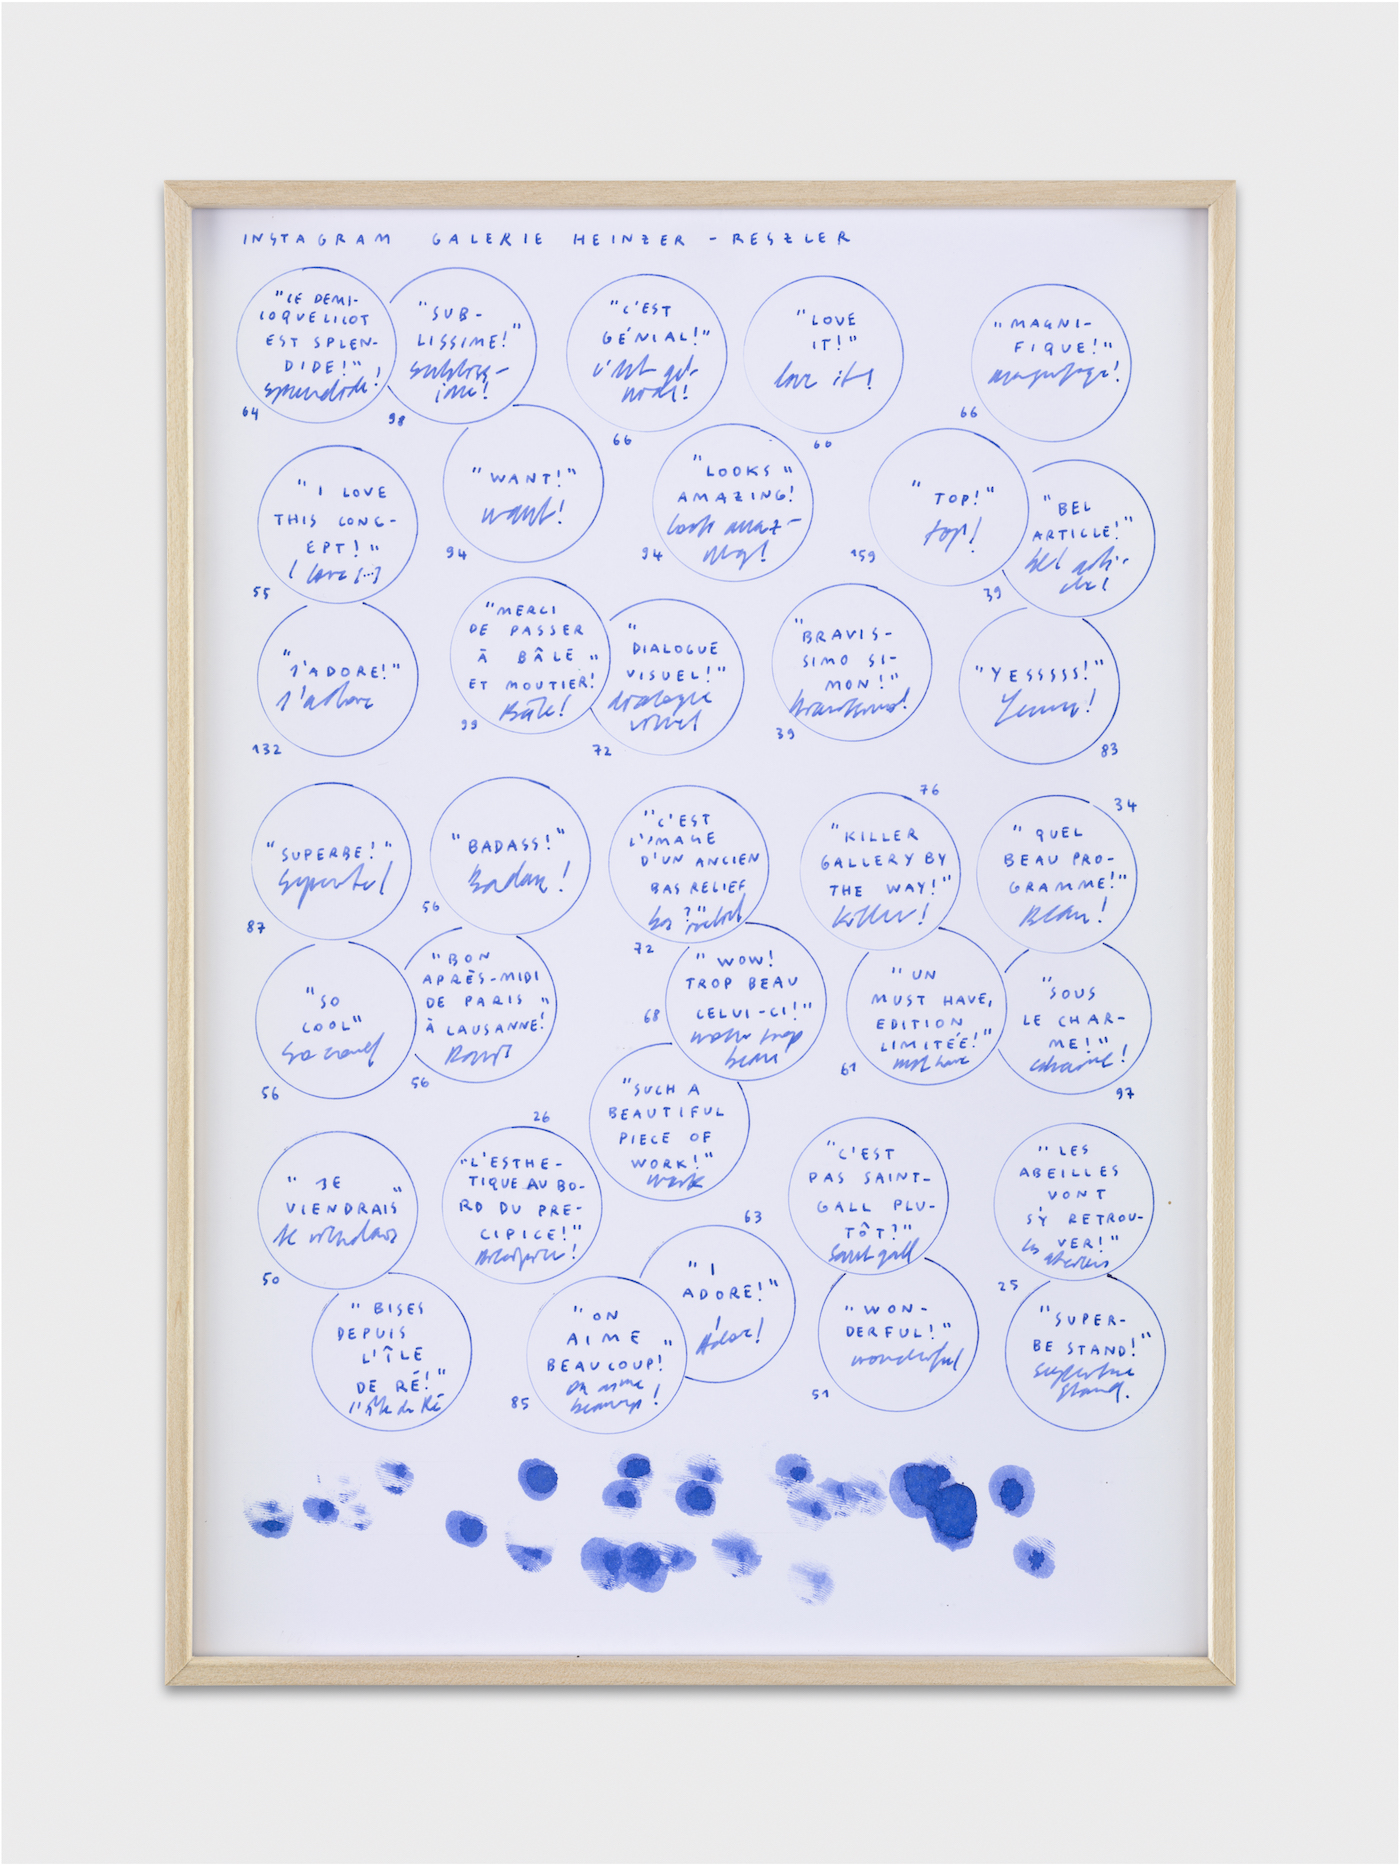 INSTAGRAM GALERIE HEINZER - RESZLER
"CE DEMI-
COQUELICOT
EST SPLEN-
DIDE!"
splendide!
64
"SUB-
LISSIME!"
subliss-
ime!
98
"C'EST
GÉNIAL!"
c'est gé-
nial!
66
"LOVE
IT!"
love it!
60
"MAGNI-
FIQUE!"
magnifique!
66
"I LOVE
THIS CONC-
EPT!"
I love [...]
55
"WANT!"
want!
94
"LOOKS
AMAZING!"
look amaz-
ing!
94
"TOP!"
top!
159
"BEL
ARTICLE!"
bel arti-
cle!
39
"J'ADORE!"
J'adore
132
"MERCI
DE PASSER
À BÂLE
ET MOUTIER!"
Bâle!
99
"DIALOGUE
VISUEL!"
dialogue
visuel
72
"BRAVIS-
SIMO SI-
MON!"
39
"YESSSSS!"
83
"SUPERBE!"
superbe!
87
"BADASS!"
Badass!
56
"C'EST
L'IMAGE
D'UN ANCIEN
BAS RELIEF
?"
bas relief
72
"KILLER
GALLERY BY
THE WAY!"
killer!
76
"QUEL
BEAU PRO-
GRAMME!"
Beau!
34
"SO
COOL"
so cool
56
"BON
APRÈS-MIDI
DE PARIS
À LAUSANNE!"
56
"WOW!
TROP BEAU
CELUI-CI!"
wow trop
beau
68
"UN
MUST HAVE,
EDITION
LIMITÉE!"
must have
61
"SOUS
LE CHAR-
ME!"
charme!
97
"SUCH A
BEAUTIFUL
PIECE OF
WORK!"
work
"JE
VIENDRAIS"
Je viendrais
50
"L'ESTHE-
TIQUE AU BO-
RD DU PRE-
CIPICE!"
precipice!
26
"C'EST
PAS SAINT-
GALL PLU-
TÔT?"
Saint gall
"LES
ABEILLES
VONT
S'Y RETROU-
VER!"
les abeilles
25
"BISES
DEPUIS
L'ÎLE
DE RÉ!"
l'île de Ré
"ON
AIME
BEAUCOUP!"
on aime
beaucoup!
85
"I
ADORE!"
Adore!
63
"WON-
DERFUL!"
wonderful
51
"SUPER-
BE STAND!"
superbe
stand.